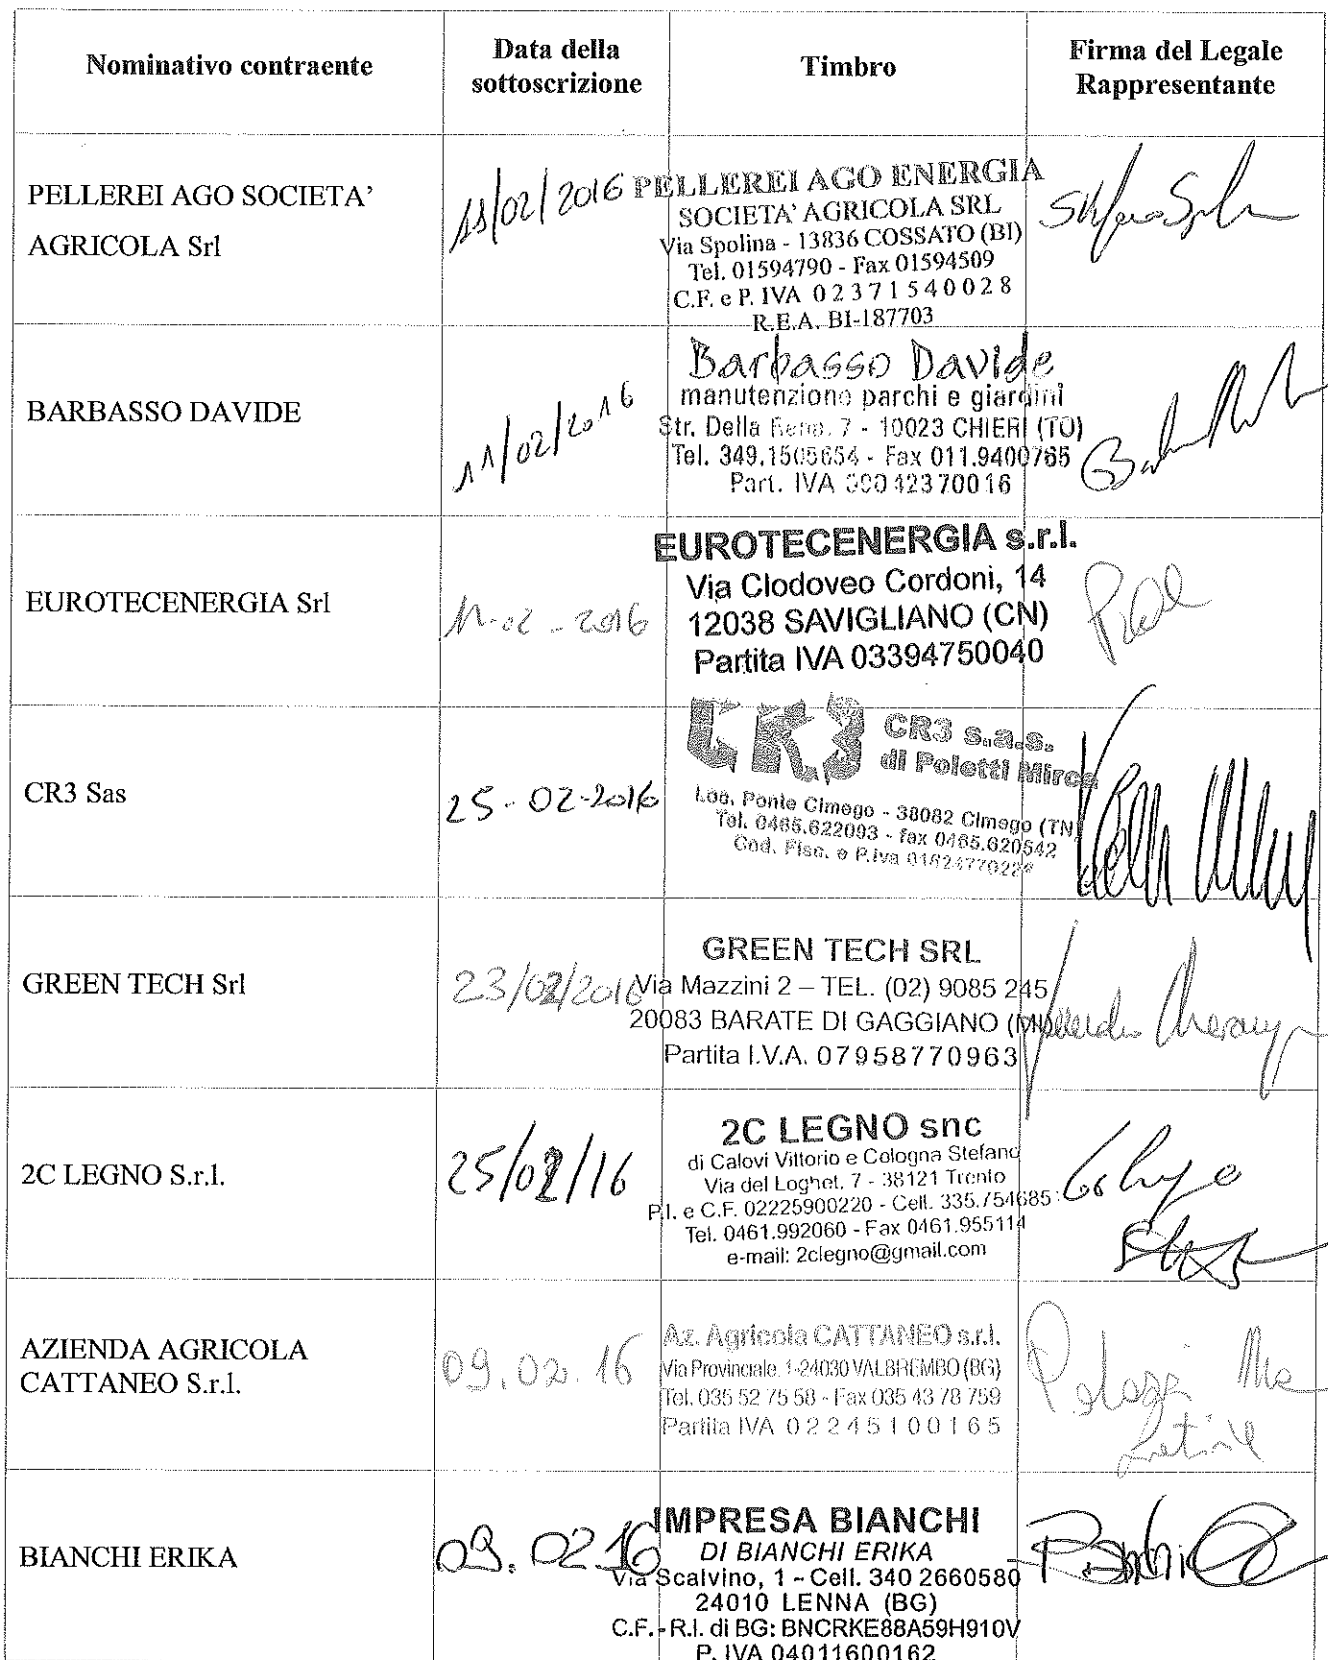 Nominativo contraente
Data della
sottoscrizione
Timbro
Firma del Legale
Rappresentante
PELLEREI AGO SOCIETA'
AGRICOLA Srl
11/02/2016
PELLEREI AGO ENERGIA
SOCIETA' AGRICOLA SRL
Via Spolina - 13836 COSSATO (BI)
Tel. 01594790 - Fax 01594509
C.F. e P. IVA 02371540028
R.E.A. BI-187703
BARBASSO DAVIDE
11/02/2016
Barbasso Davide
manutenzione parchi e giardini
Str. Della 7 - 10023 CHIERI (TO)
Tel. 349.1505654 - Fax 011.9400765
Part. IVA
EUROTECENERGIA Srl
11-02-2016
EUROTECENERGIA s.r.l.
Via Clodoveo Cordoni, 14
12038 SAVIGLIANO (CN)
Partita IVA 03394750040
CR3 Sas
25-02-2016
CR3
CR3 s.a.s.
di Poletti Mirco
Loc. Ponte Cimego - 38082 Cimego (TN)
Tel. 0465.622093 - fax 0465.620542
Cod. Fisc. e P.iva
GREEN TECH Srl
23/02/2016
GREEN TECH SRL
Via Mazzini 2 – TEL. (02) 9085 245
20083 BARATE DI GAGGIANO (MI)
Partita I.V.A. 07958770963
2C LEGNO S.r.l.
25/02/16
2C LEGNO snc
di Calovi Vittorio e Cologna Stefano
Via del Loghet, 7 - 38121 Trento
P.I. e C.F. 02225900220 - Cell. 335.754685
Tel. 0461.992060 - Fax 0461.955114
e-mail: 2clegno@gmail.com
AZIENDA AGRICOLA
CATTANEO S.r.l.
09.02.16
Az. Agricola CATTANEO s.r.l.
Via Provinciale, 1-24030 VALBREMBO (BG)
Tel. 035 52 75 58 - Fax 035 43 78 759
Partita IVA 02245100165
BIANCHI ERIKA
09.02.16
IMPRESA BIANCHI
DI BIANCHI ERIKA
Via Scalvino, 1 - Cell. 340 2660580
24010 LENNA (BG)
C.F. - R.I. di BG: BNCRKE88A59H910V
P. IVA 04011600162